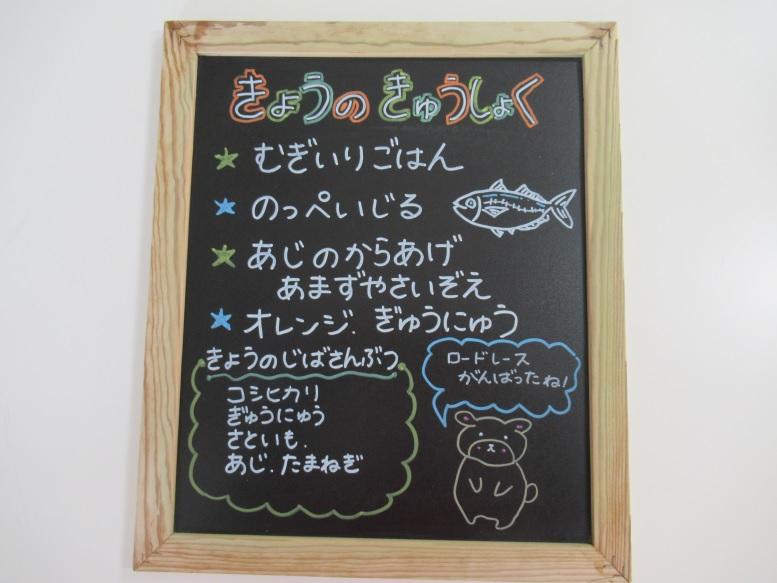 きょうの きゅうしょく
★ むぎいりごはん
★ のっぺいじる
★ あじのからあげ
あまずやさいぞえ
★ オレンジ. ぎゅうにゅう
きょうのじばさんぶつ
コシヒカリ
ぎゅうにゅう
さといも.
あじ.たまねぎ
ロードレース
がんばったね!